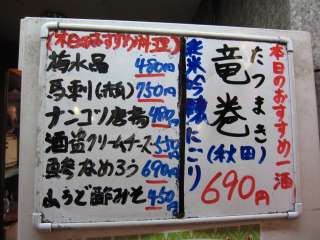 本日のおすすめ一酒
たつまき
竜巻(秋田)
純米吟醸にごり
690円
(本日のおすすめ料理)
梅水晶 480円
馬刺(赤肉) 750円
ナンコツ唐揚 480円
酒盗クリームチーズ 550円
鯵なめろう 690円
山うど酢みそ 450円